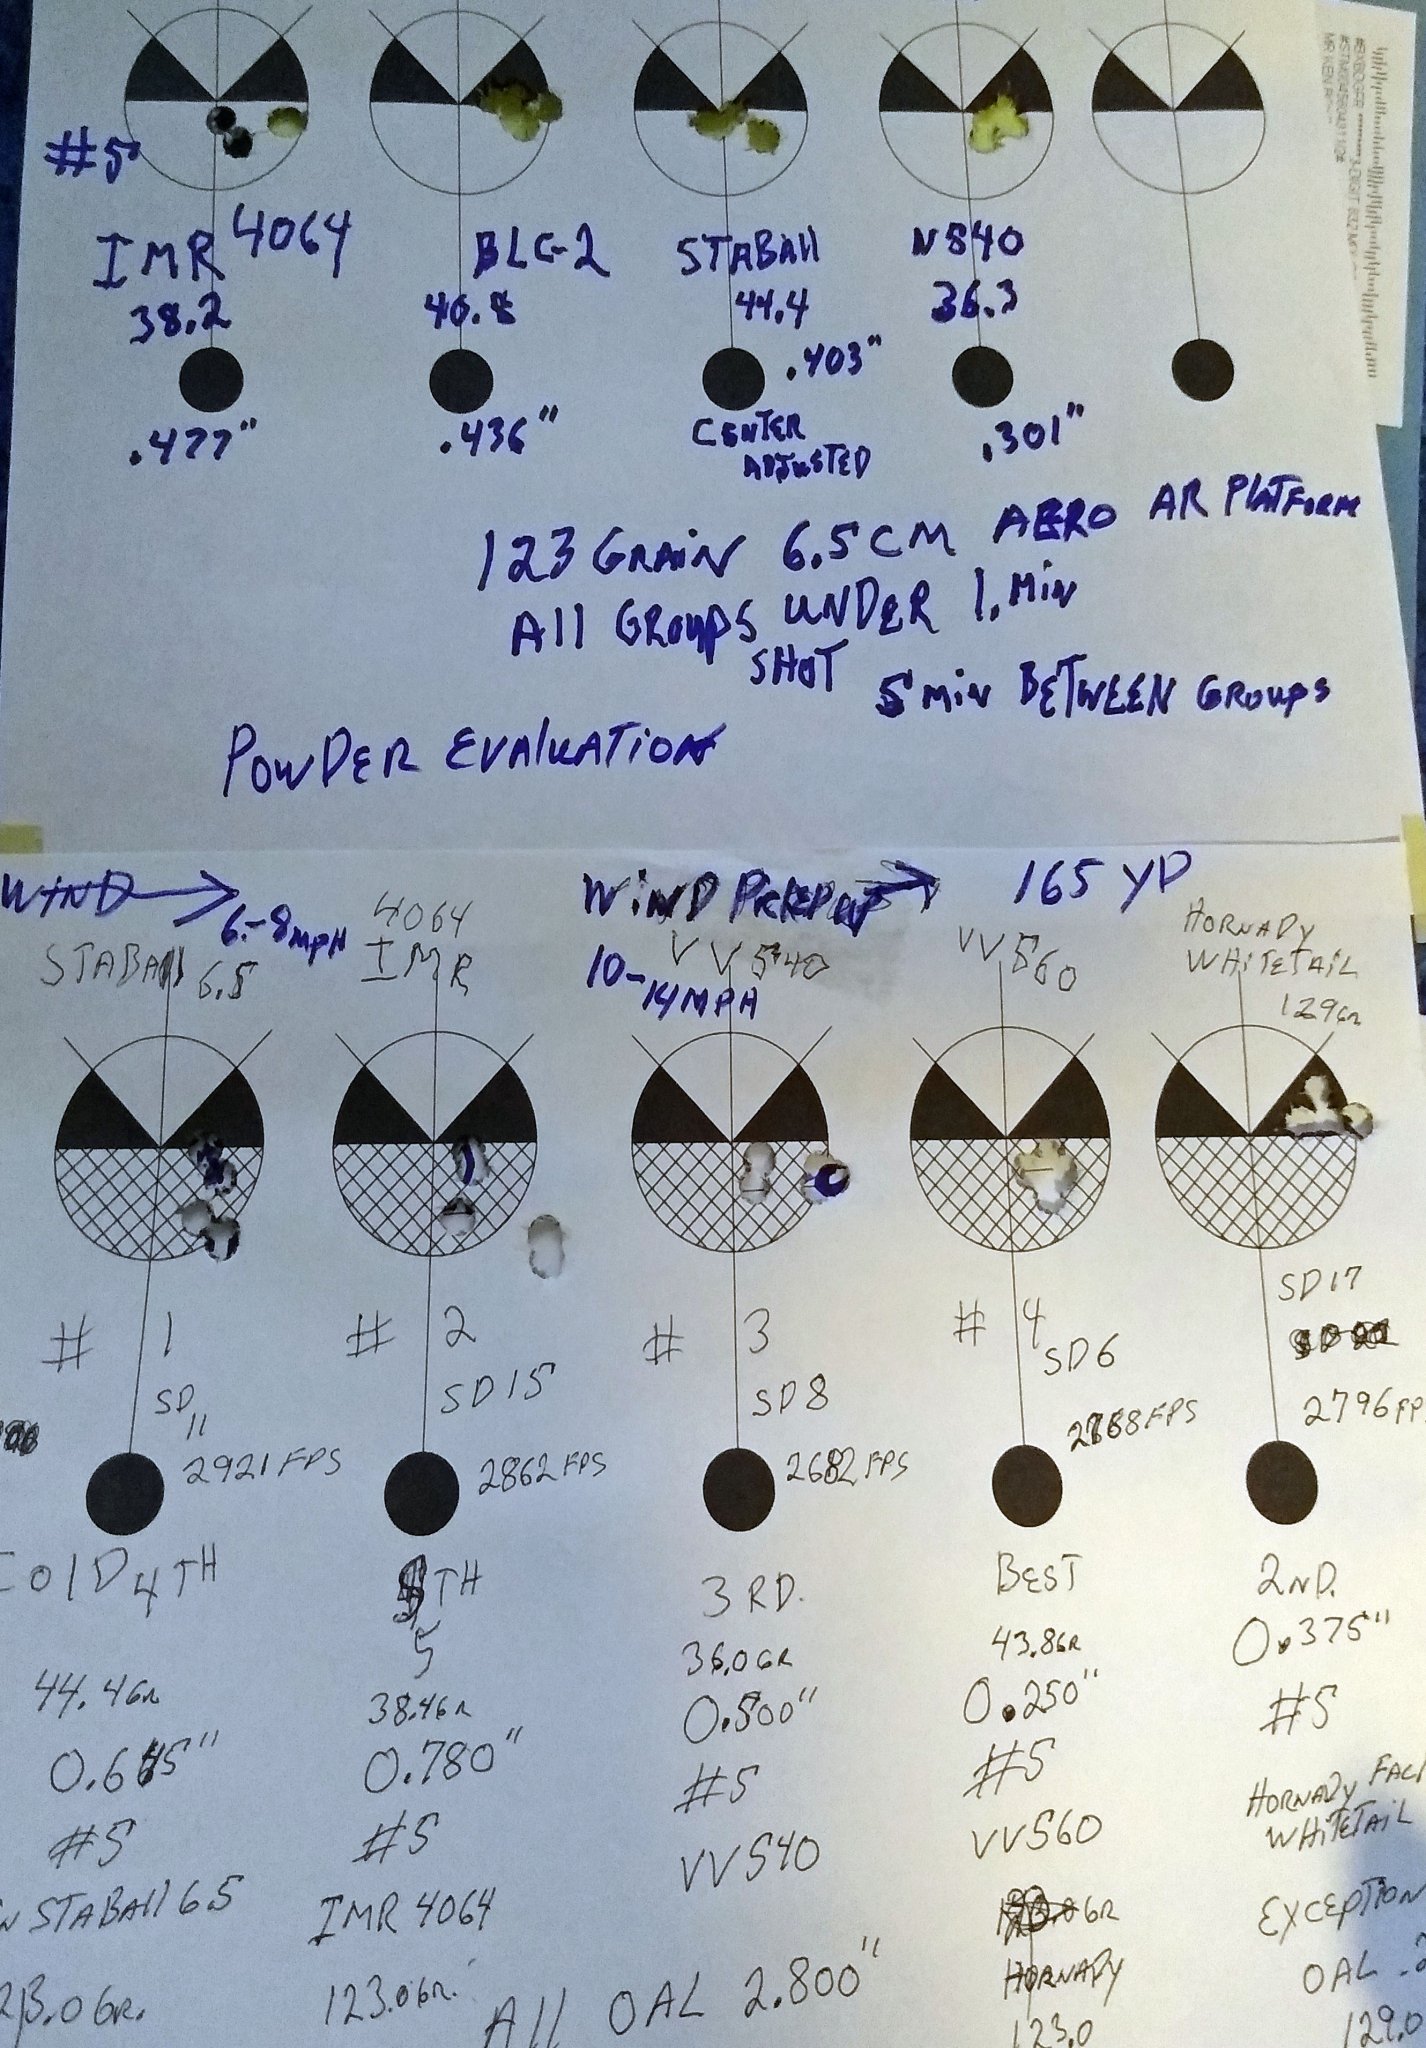 #5
IMR 4064
BLC-2
STABAll
N540
38.2
40.8
44.4
36.3
.403"
.477"
.436"
CENTER
ADJUSTED
.301"
123 GRAIN 6.5 CM AERO AR PLATFORM
All GROUPS UNDER 1. MIN
SHOT 5 MIN BETWEEN GROUPS
POWDER EVALUATION
WIND
6-8 MPH
WIND
10-14 MPH
165 YD
STABAll 6.5
4064
IMR
VV 540
VV560
HORNADY
WHITETAIL
129GR
# 1
# 2
# 3
# 4
SD 11
SD 15
SD 8
SD 6
SD 17
2921 FPS
2862 FPS
2682 FPS
2796 FP
COlD 4TH
5 TH
3 RD.
BEST
2ND.
44.4GR
38.4GR
36.0GR
43.8GR
0.375"
0.780"
0.500"
0.250"
#5
#5
#5
#5
#5
STABAll 65
IMR 4064
VV540
VV560
HORNADY FAC
WHITETAIL
123.0GR.
HORNADY
123.0
EXCEPTION
OAL .2
129.0
All OAL 2.800"